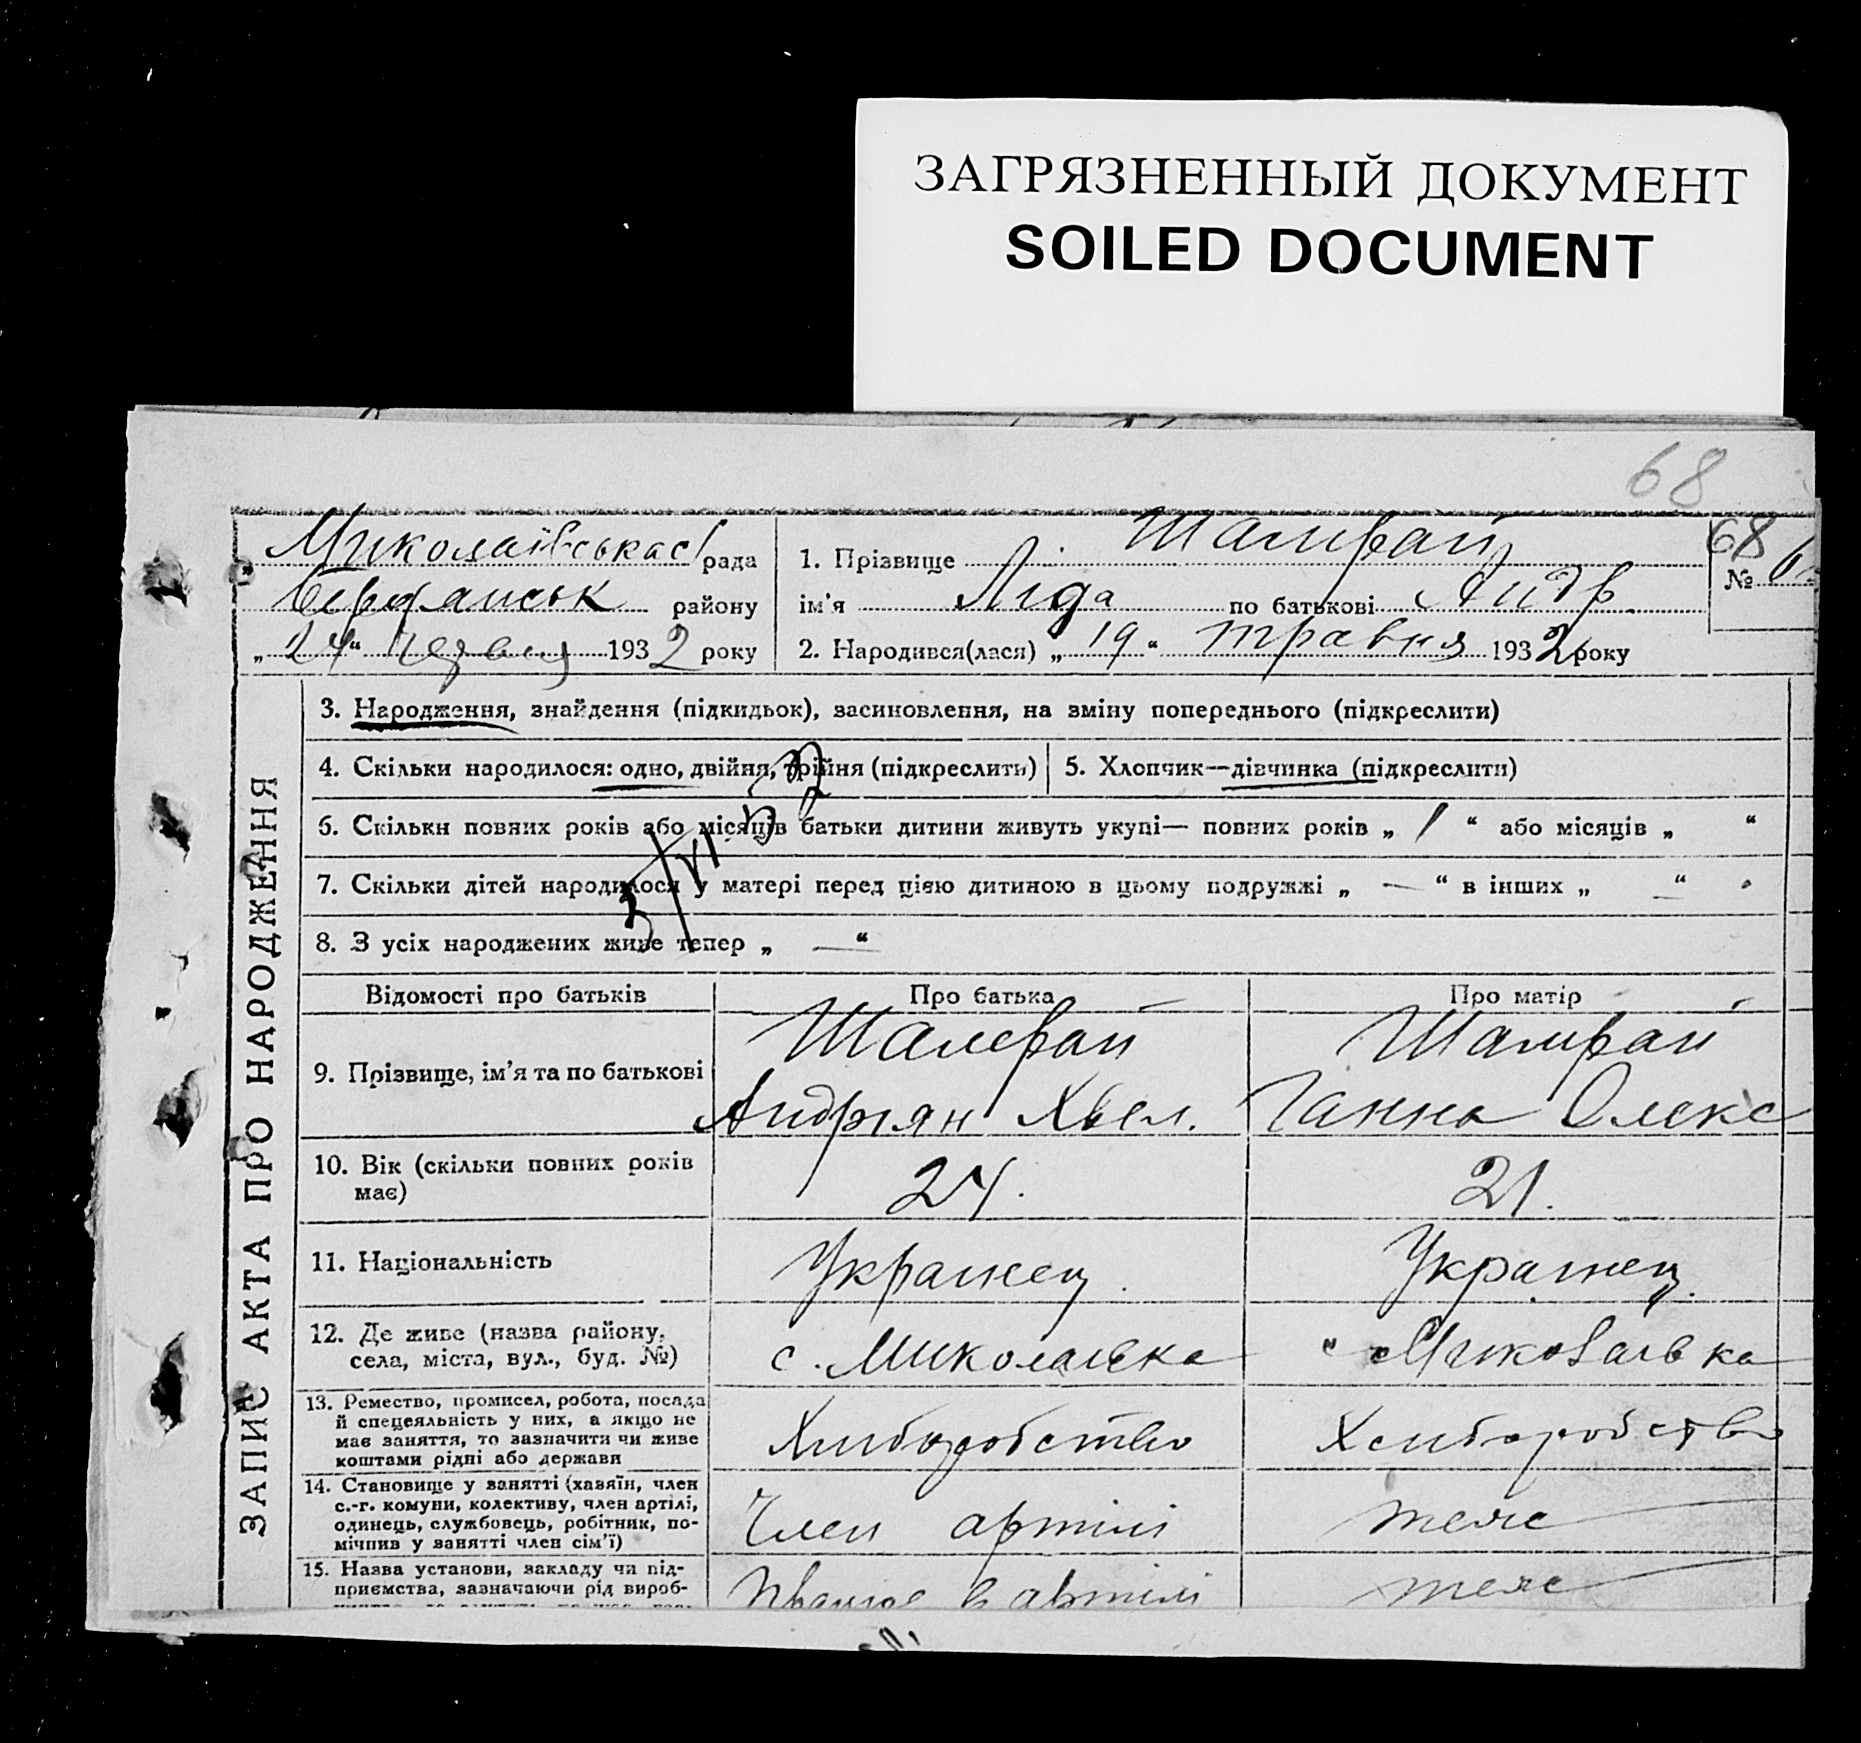 ЗАГРЯЗНЕННЫЙ ДОКУМЕНТ
SOILED DOCUMENT
68
Миколаївська с/рада
Бердянськ району
„24“ червня 1932 року
1. Прізвище Шамрай
ім'я Ліда по батькові Андр
2. Народився(лася) „19“ травня 1932 року
68
№
ЗАПИС АКТА ПРО НАРОДЖЕННЯ
3. Народження, знайдення (підкидьок), засиновлення, на зміну попереднього (підкреслити)
4. Скільки народилося: одно, двійня, трійня (підкреслить)
5. Хлопчик—дівчинка (підкреслити)
6. Скільки повних років або місяців батьки дитини живуть укупі— повних років „ 1 “ або місяців „ “
7. Скільки дітей народилося у матері перед цією дитиною в цьому подружжі „ — “ в інших „ — “
8. З усіх народжених живе тепер „ — “
Відомості про батьків
Про батька
Про матір
9. Прізвище, ім'я та по батькові
Шамрай
Андріян
Шамрай
Ганна Олекс
10. Вік (скільки повних років
має)
24.
21.
11. Національність
Українец
Українец
12. Де живе (назва району,
села, міста, вул., буд. №)
с. Миколаївка
с Миколаївка
13. Ремество, промисел, робота, посада
й спецеяльність у них, а якщо не
має заняття, то зазначити чи живе
коштами рідні або держави
Хлиборобство
Хлиборобство
14. Становище у занятті (хазяїн, член
с.-г. комуни, колективу, член артілі,
одинець, службовець, робітник, по-
мічпив у занятті член сім'ї)
Член артілі
теж
15. Назва установи, закладу чи під-
приємства, зазначаючи рід вироб-
Працює в артілі
теж